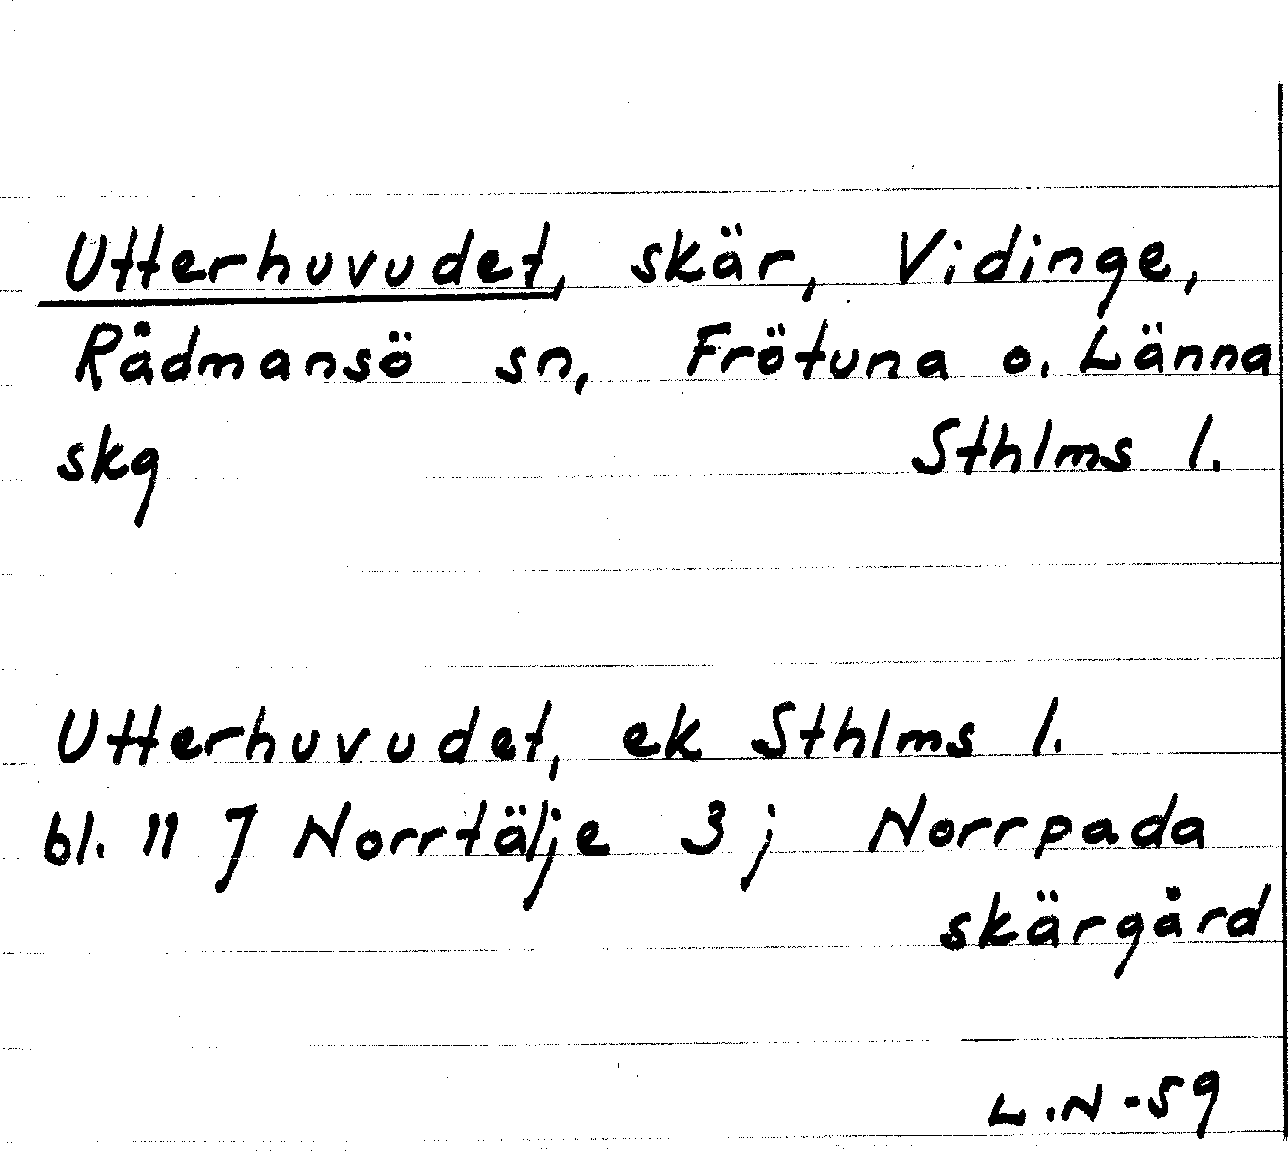 Utterhuvudet, skär, Vidinge,
Rådmansö sn, Frötuna o. Länna
skg Sthlms l.
Utterhuvudet, ek Sthlms l.
bl. 11 J Norrtälje 3 j Norrpada
skärgård
L.N-59